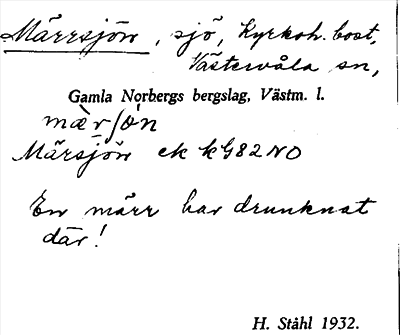 Märrsjön, sjö, Kyrkoh. bost.
Västervåla sn,
Gamla Norbergs bergslag, Västm. l.
mærʃön
Märsjön ek kG82NO
En märr har drunknat
där!
H. Ståhl 1932.